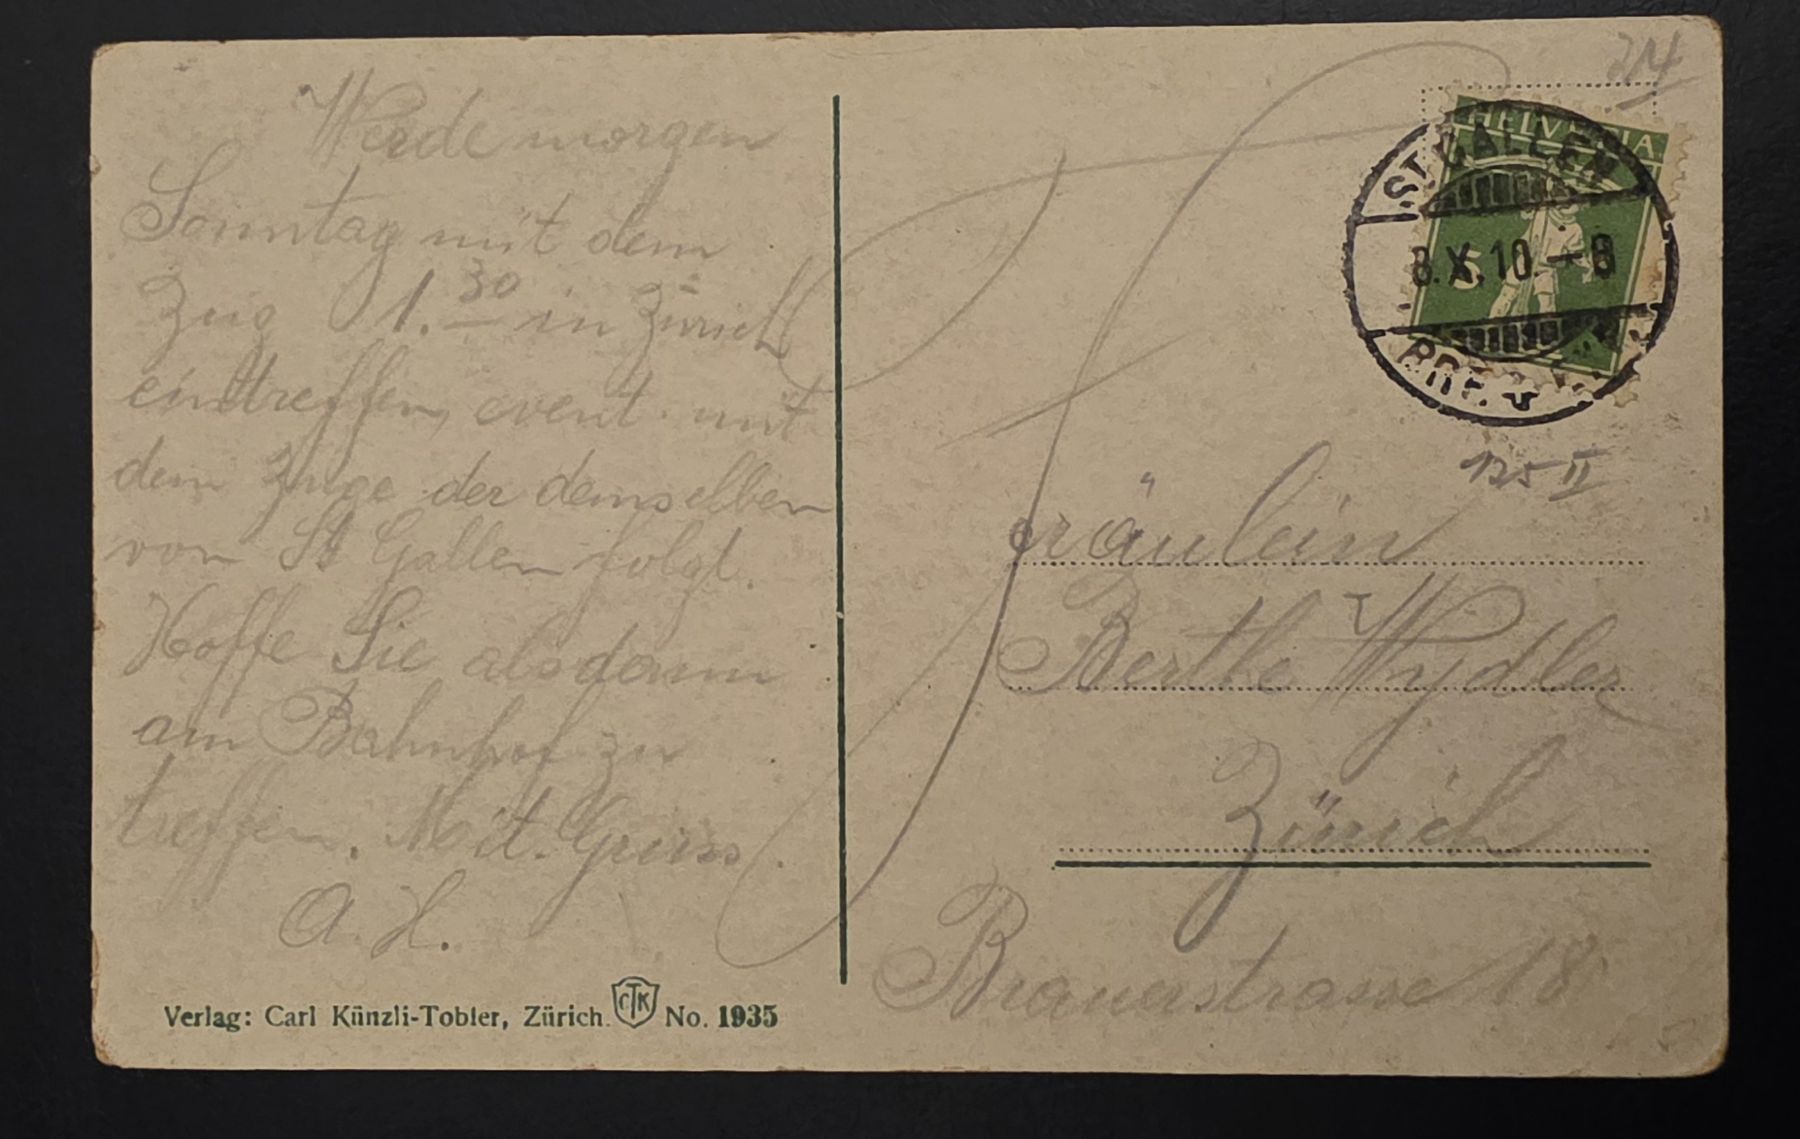 Werde morgen
Sonntag mit dem
Zug 1.30 in Zürich
eintreffen, event. mit
dem Zuge der demselben
von St Gallen folgt.
Hoffe Sie alsdann
am Bahnhof zu
treffen. Mit Gruss
A. H.
Verlag: Carl Künzli-Tobler, Zürich. CTK No. 1935
HELVETIA
5
ST. GALLEN
8.X.10.–8
BRF.
125 II
Fräulein
Berthe Wydler
Zürich
Brauerstrasse 18